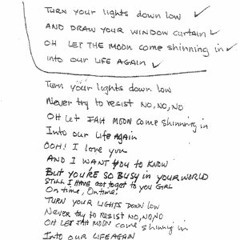 Turn your lights down low ✓
AND DRAW your WINDOW curtain ✓
OH LET THE MOON come shinning in ✓
into our LIFE Again ✓
Turn your lights down low
Never try to resist NO, NO, NO
OH LET JAH MOON come shinning in
Into our Life Again
OOH! I love you
AND I WANT you to KNOW
But you're so Busy in your WORLD
STILL I HAVE got to get to you GIRL
On time, On time.
TURN your LIGHTS DOWN LOW
Never try to RESIST NO, NO, NO
OH LET JAH MOON come shinning in
Into our LIFE AGAIN